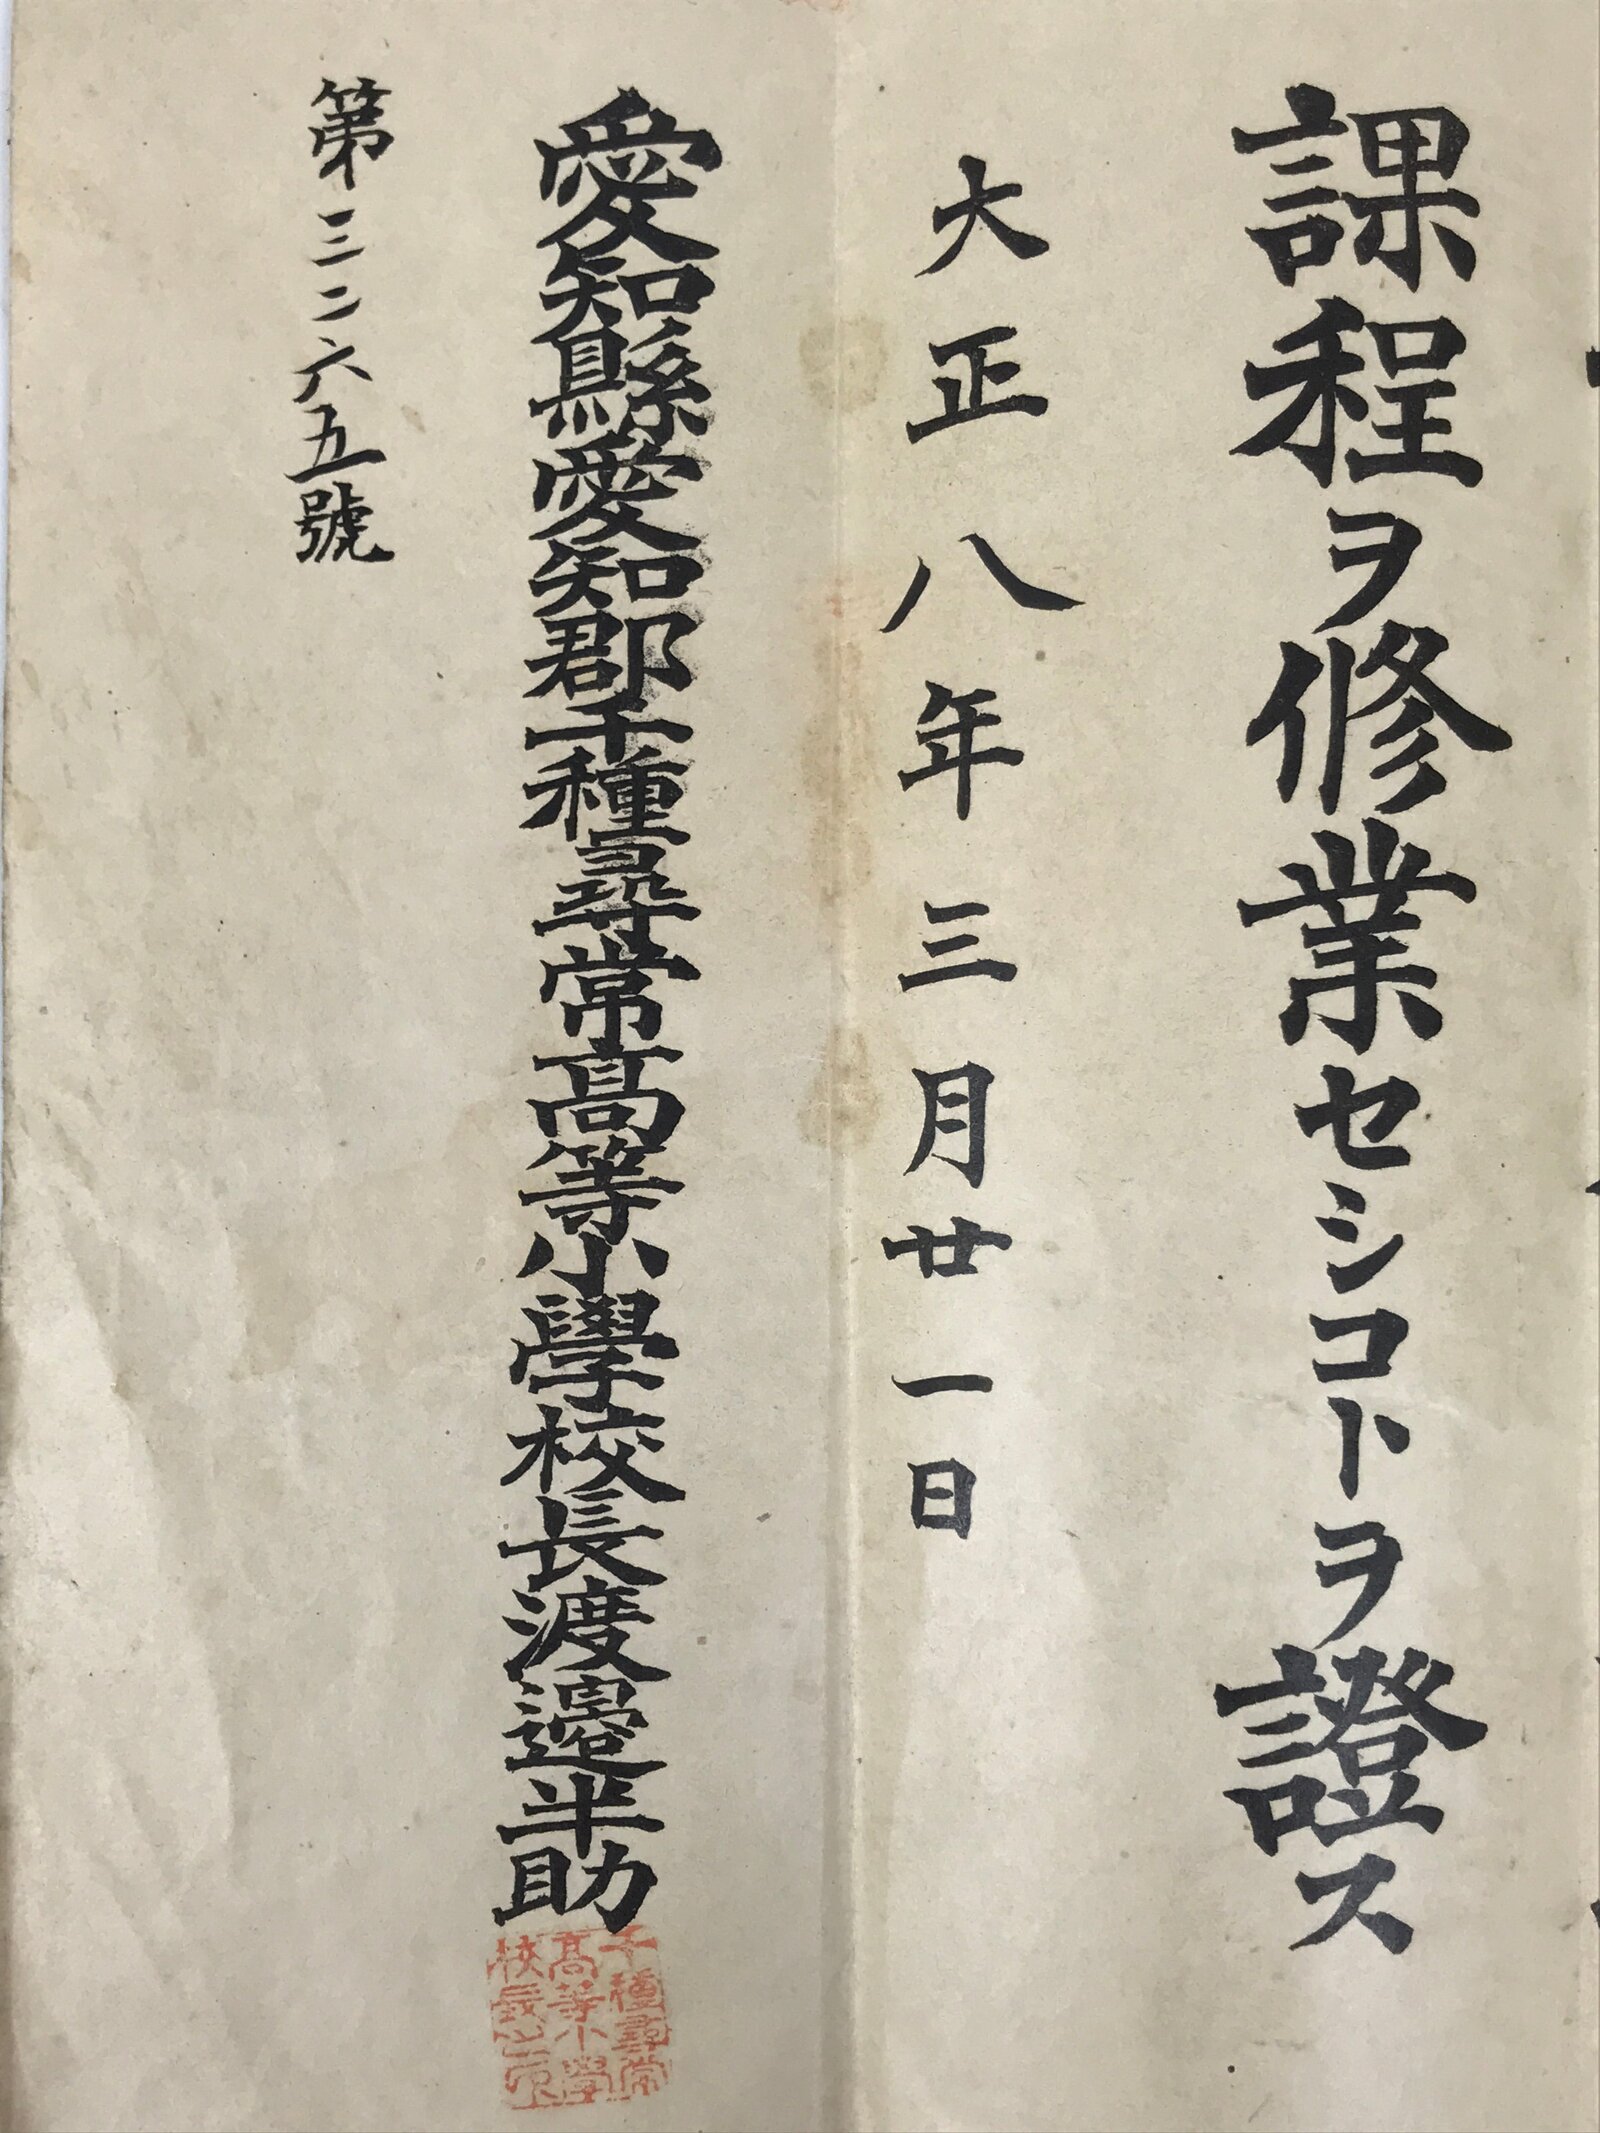 課程ヲ修業セシコトヲ證ス
大正八年三月廿一日
愛知縣愛知郡千種尋常高等小學校長渡邊半助
千種尋常
高等小學
校長之印
第三二六五號